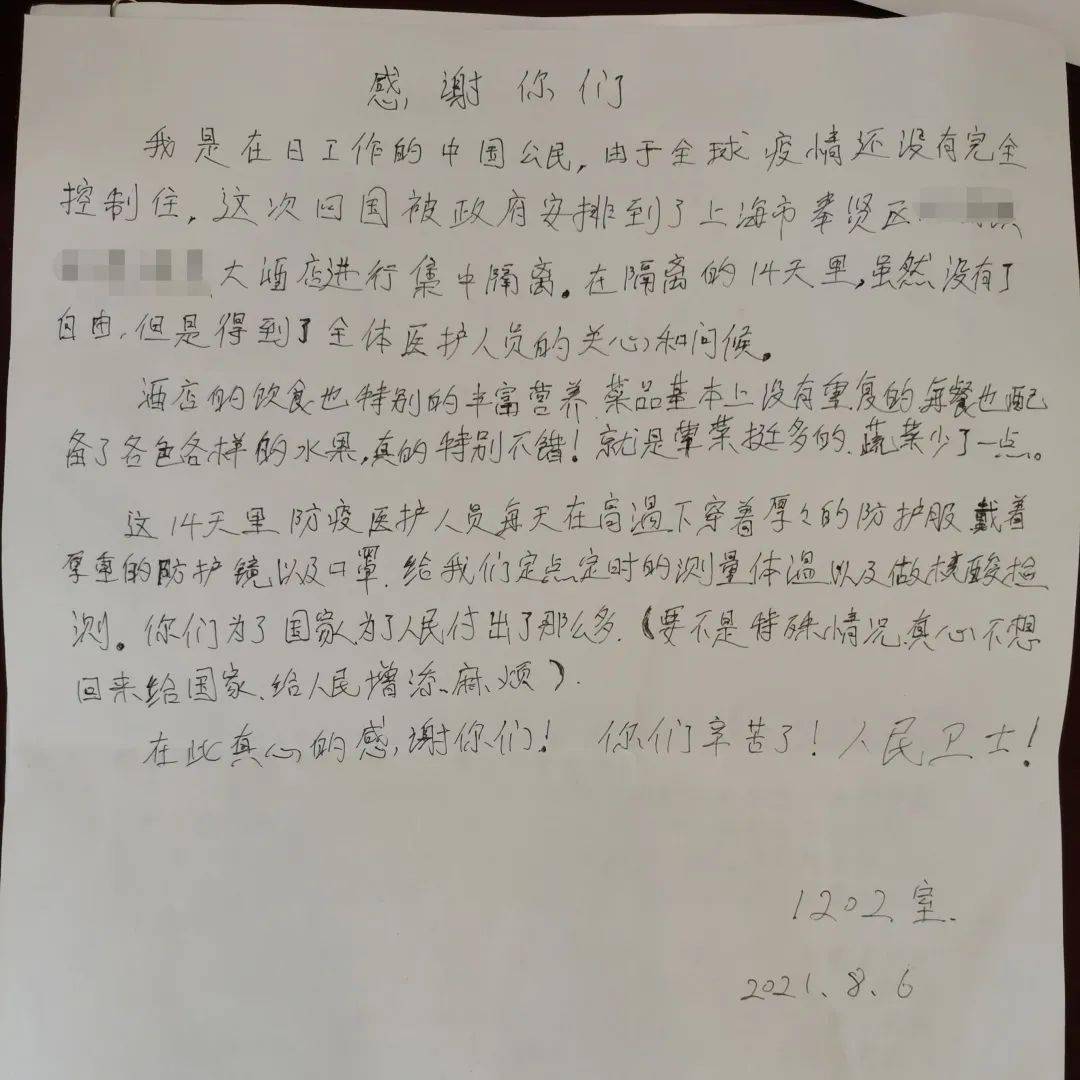 感谢你们
我是在日工作的中国公民,由于全球疫情还没有完全
控制住,这次回国被政府安排到了上海市奉贤区
大酒店进行集中隔离。在隔离的14天里,虽然没有了
自由,但是得到了全体医护人员的关心和问候。
酒店的饮食也特别的丰富营养.菜品基本上没有重复的.每餐也配
备了各色各样的水果,真的特别不错!就是荤菜挺多的.蔬菜少了一点。
这14天里防疫医护人员每天在高温下穿着厚々的防护服戴着
厚重的防护镜以及口罩.给我们定点定时的测量体温以及做核酸检
测。你们为了国家为了人民付出了那么多.(要不是特殊情况真心不想
回来给国家、给人民增添麻烦).
在此真心的感谢你们! 你们辛苦了!人民卫士!
1202室.
2021.8.6